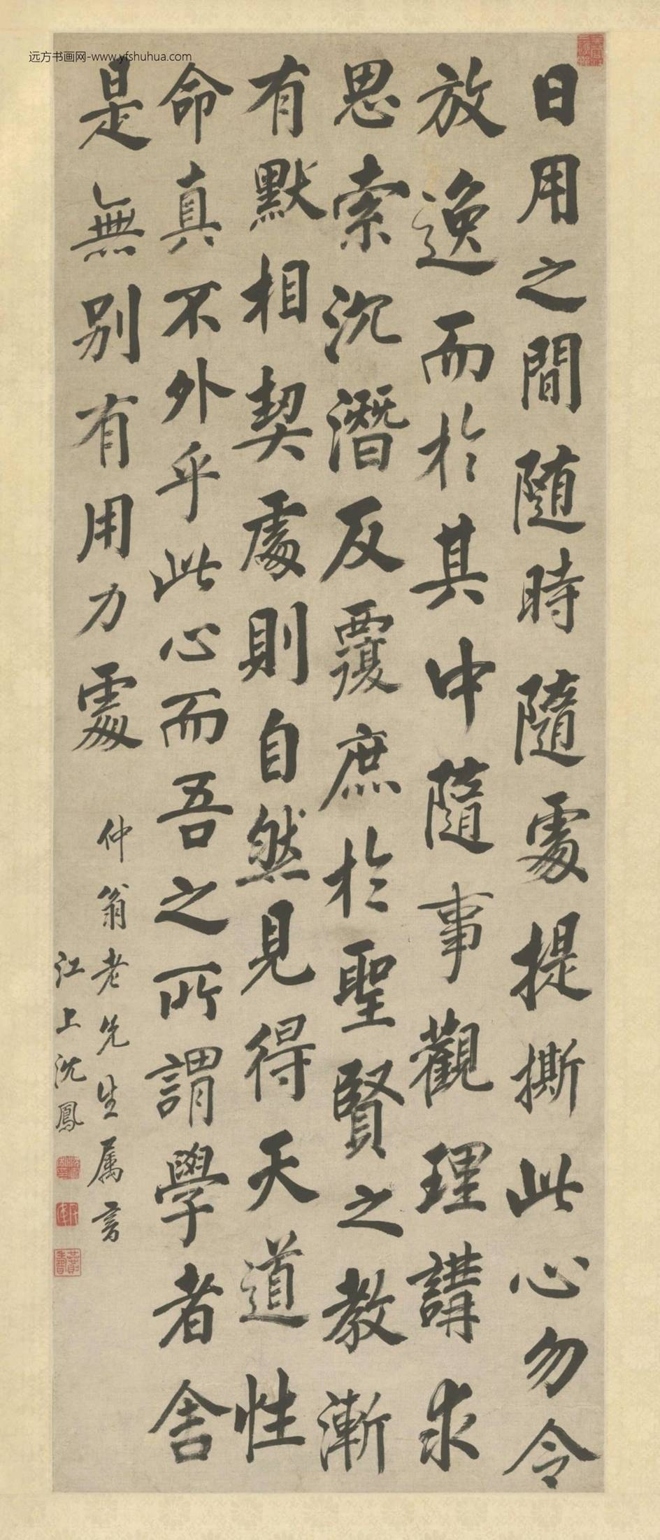 远方书画网-www.yfshuhua.com
日用之間随時隨處提撕此心勿令
放逸而於其中隨事觀理講求
思索沉潛反覆庶於聖賢之教漸
有默相契處則自然見得天道性
命真不外乎此心而吾之所謂學者舍
是無别有用力處
仲翁老先生属書
江上沈鳳